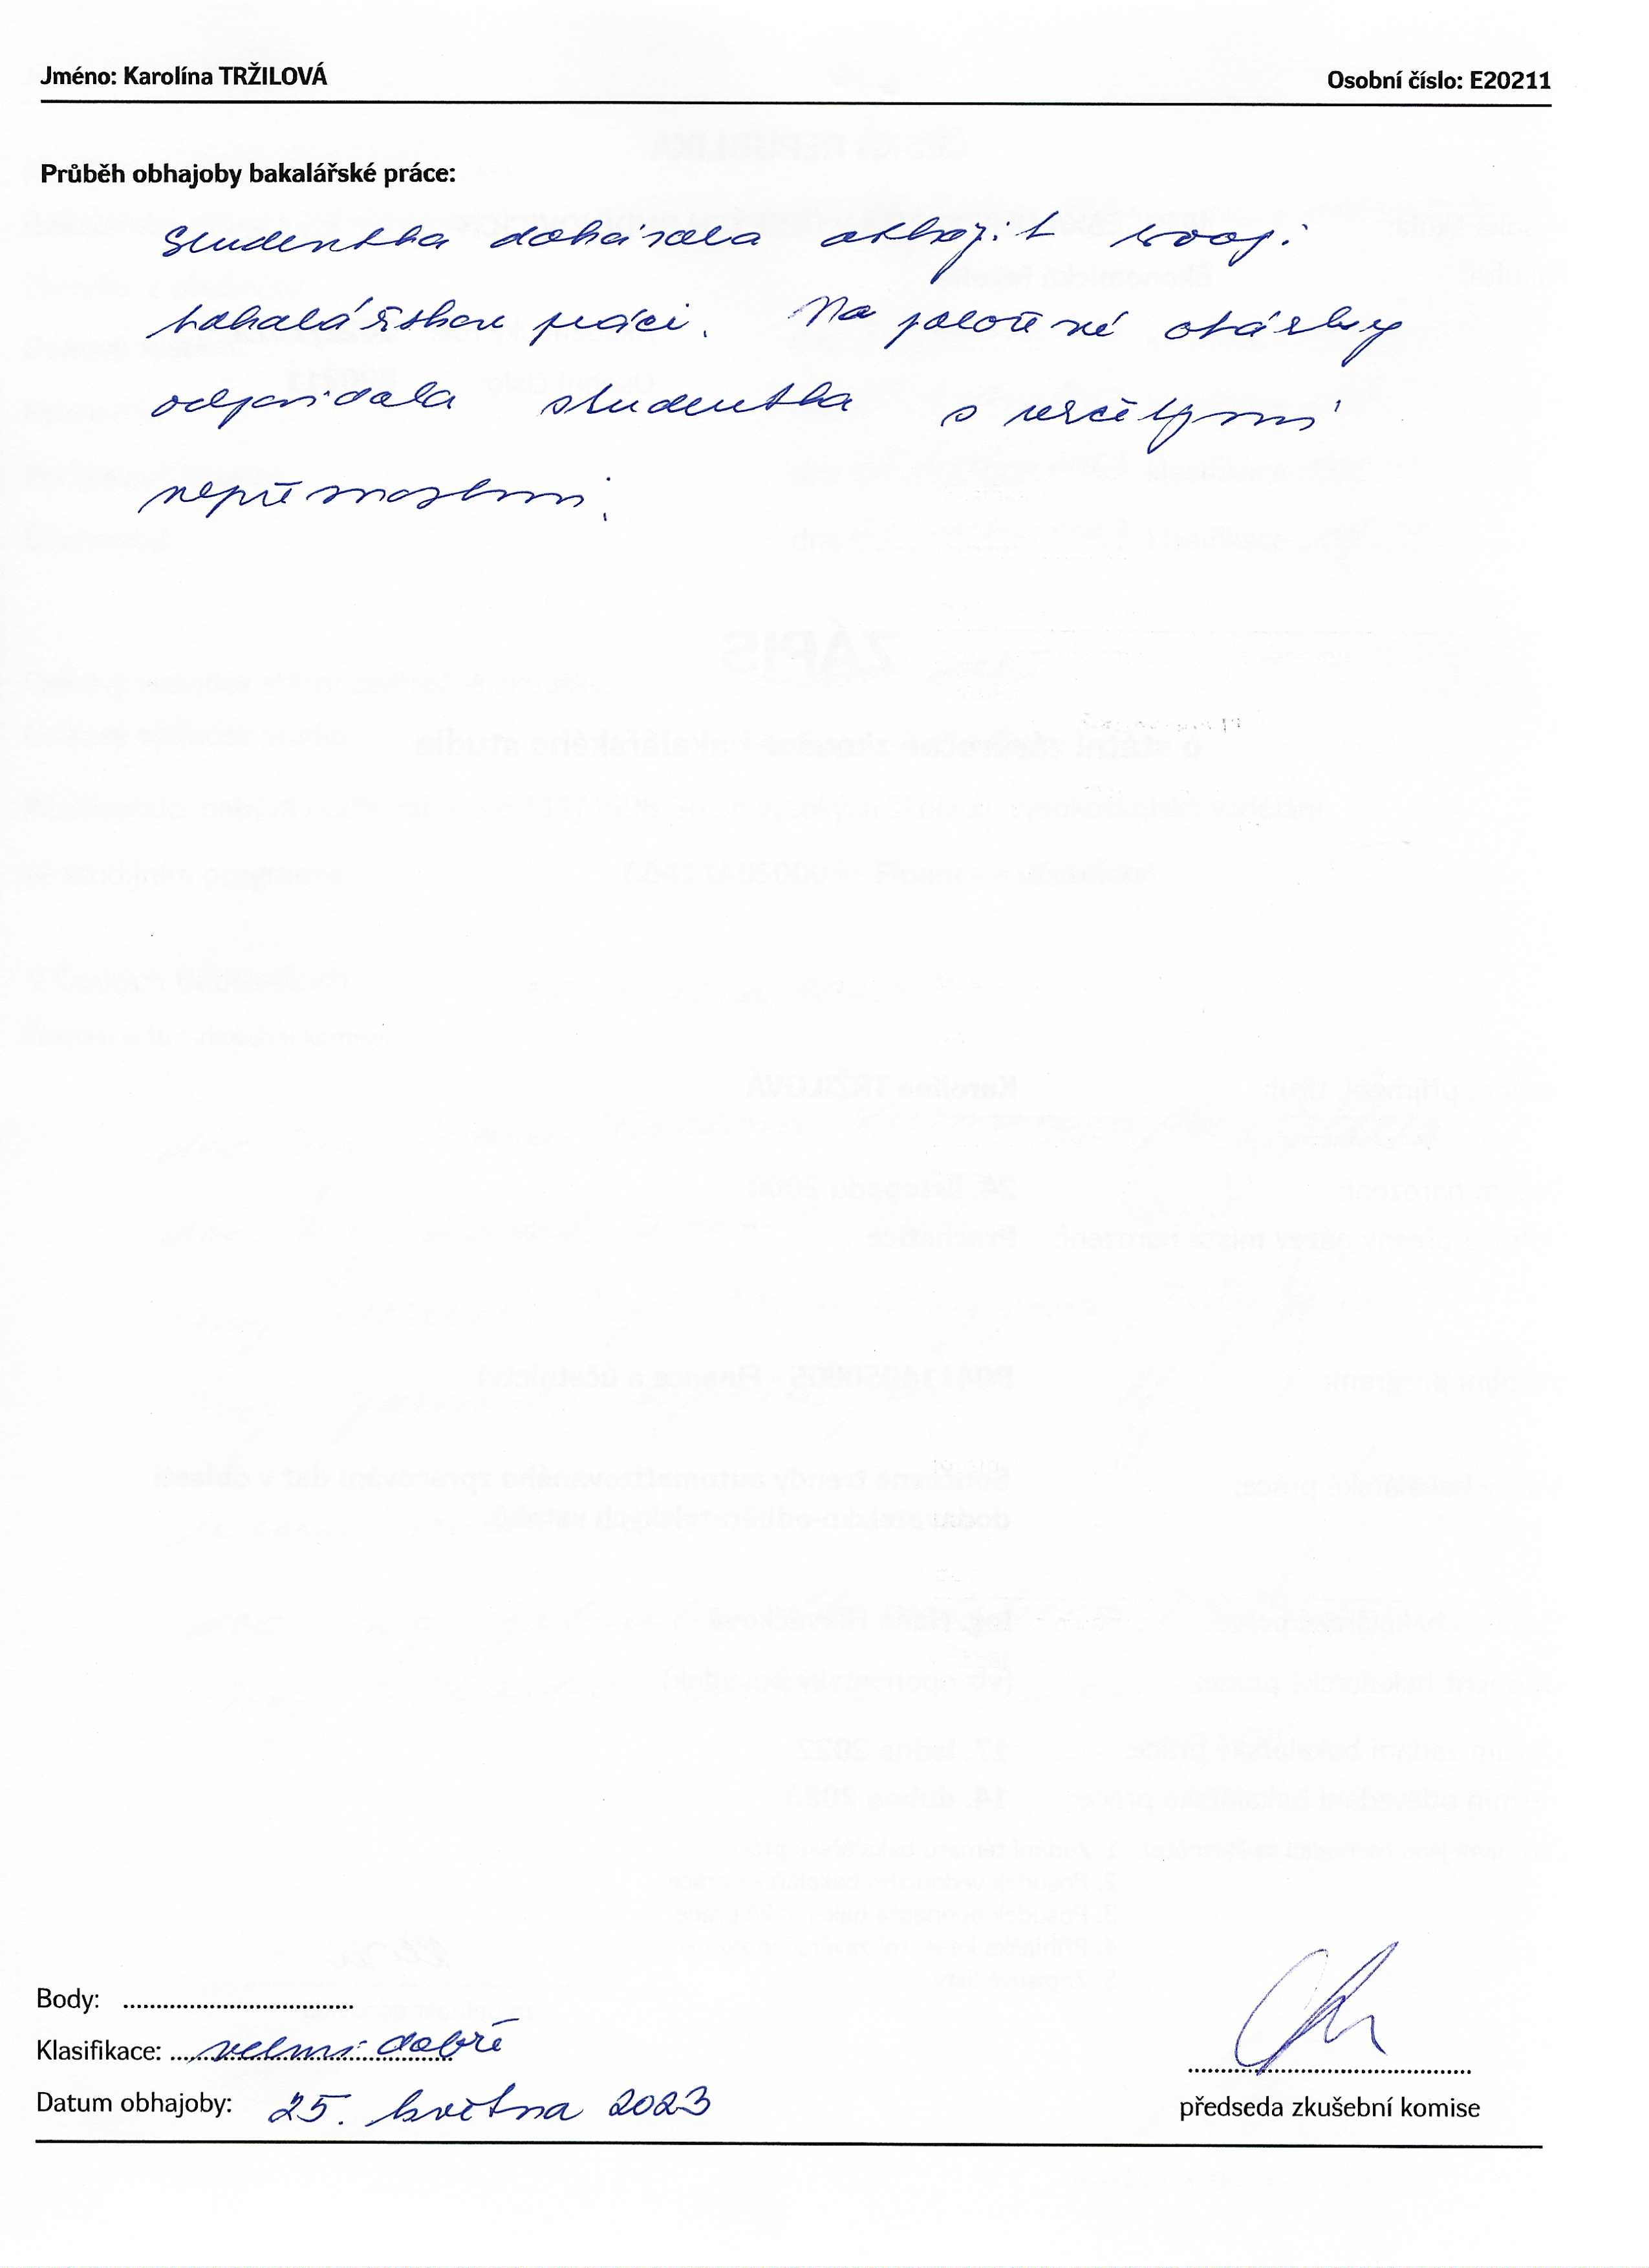 Jméno: Karolína TRŽILOVÁ Osobní číslo: E20211
Průběh obhajoby bakalářské práce:
Studentka dokázala obhájit svoji
bakalářskou práci. Na položené otázky
odpovídala studentka s určitými
nepřesnostmi.
Body: ....................................
Klasifikace: velmi dobře
Datum obhajoby: 25. května 2023
předseda zkušební komise